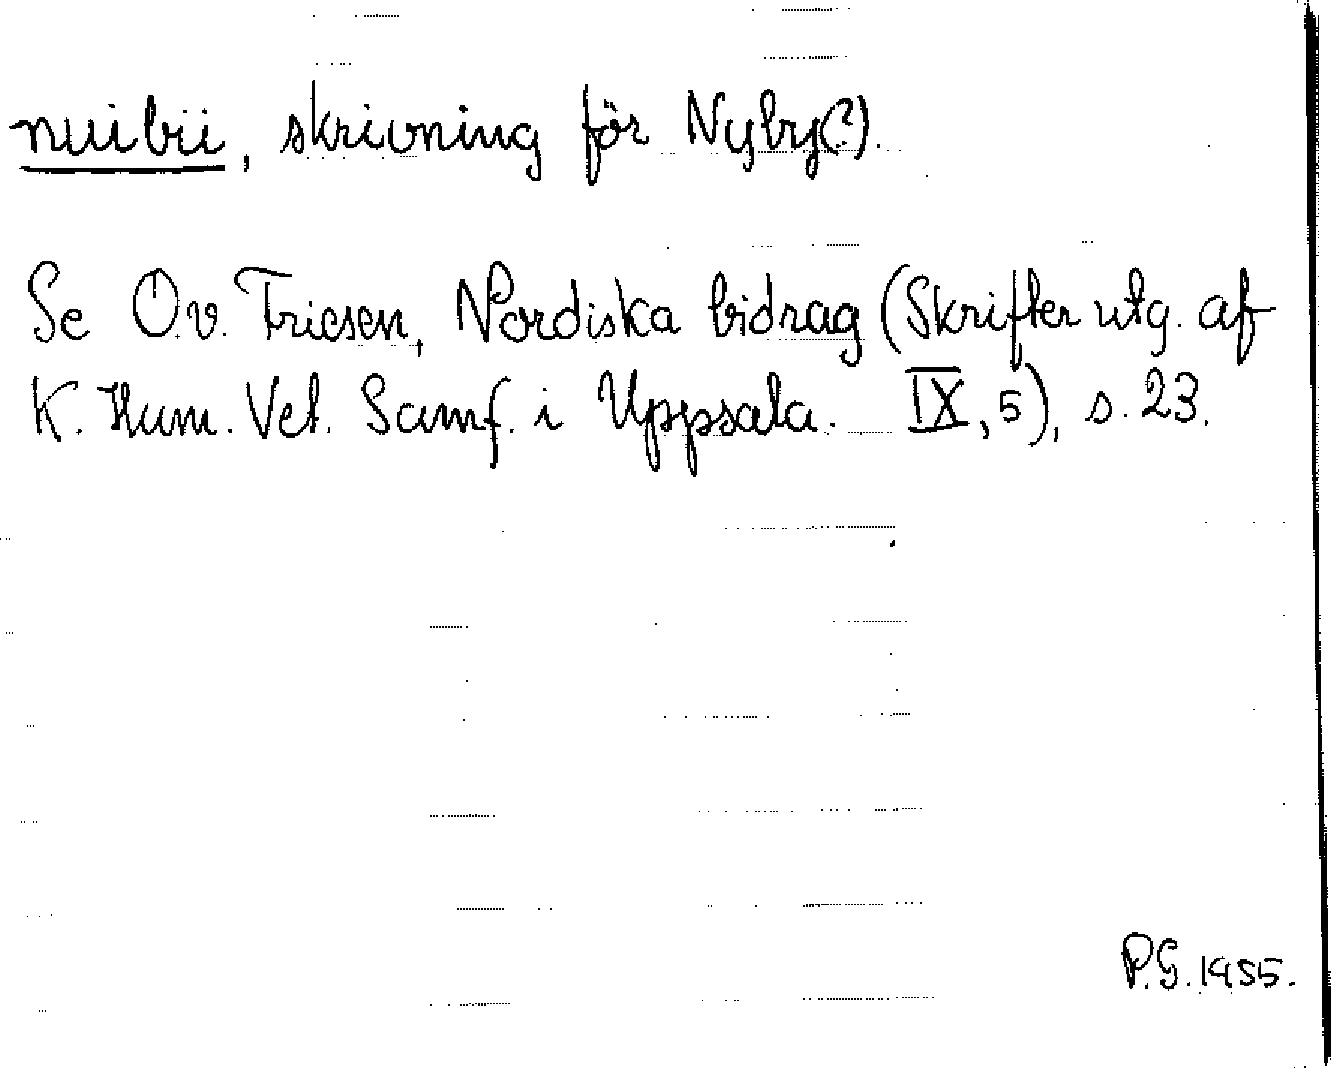 nuibii, skrivning för Nyby(?).
Se O v. Friesen, Nordiska bidrag (Skrifter utg. af
K. Hum. Vet. Samf. i Uppsala. IX, 5), s. 23.
P.G. 1955.